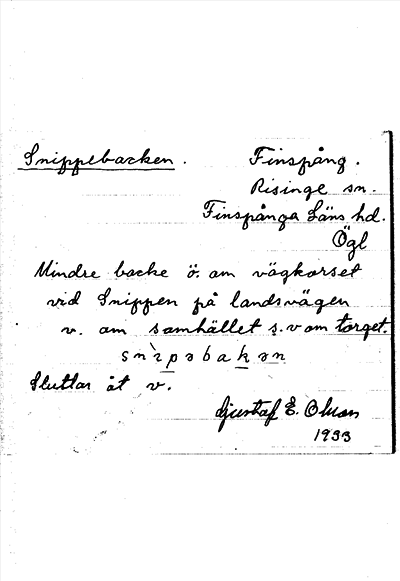 Snippebacken. Finspång.
Risinge sn.
Finspånga Läns hd.
Ögl
Mindre backe ö. om vägkorset
vid Snippen på landsvägen
v. om samhället s.v om torget.
snìpəbakən
Sluttar åt v.
Gjustaf E. Olson
1933